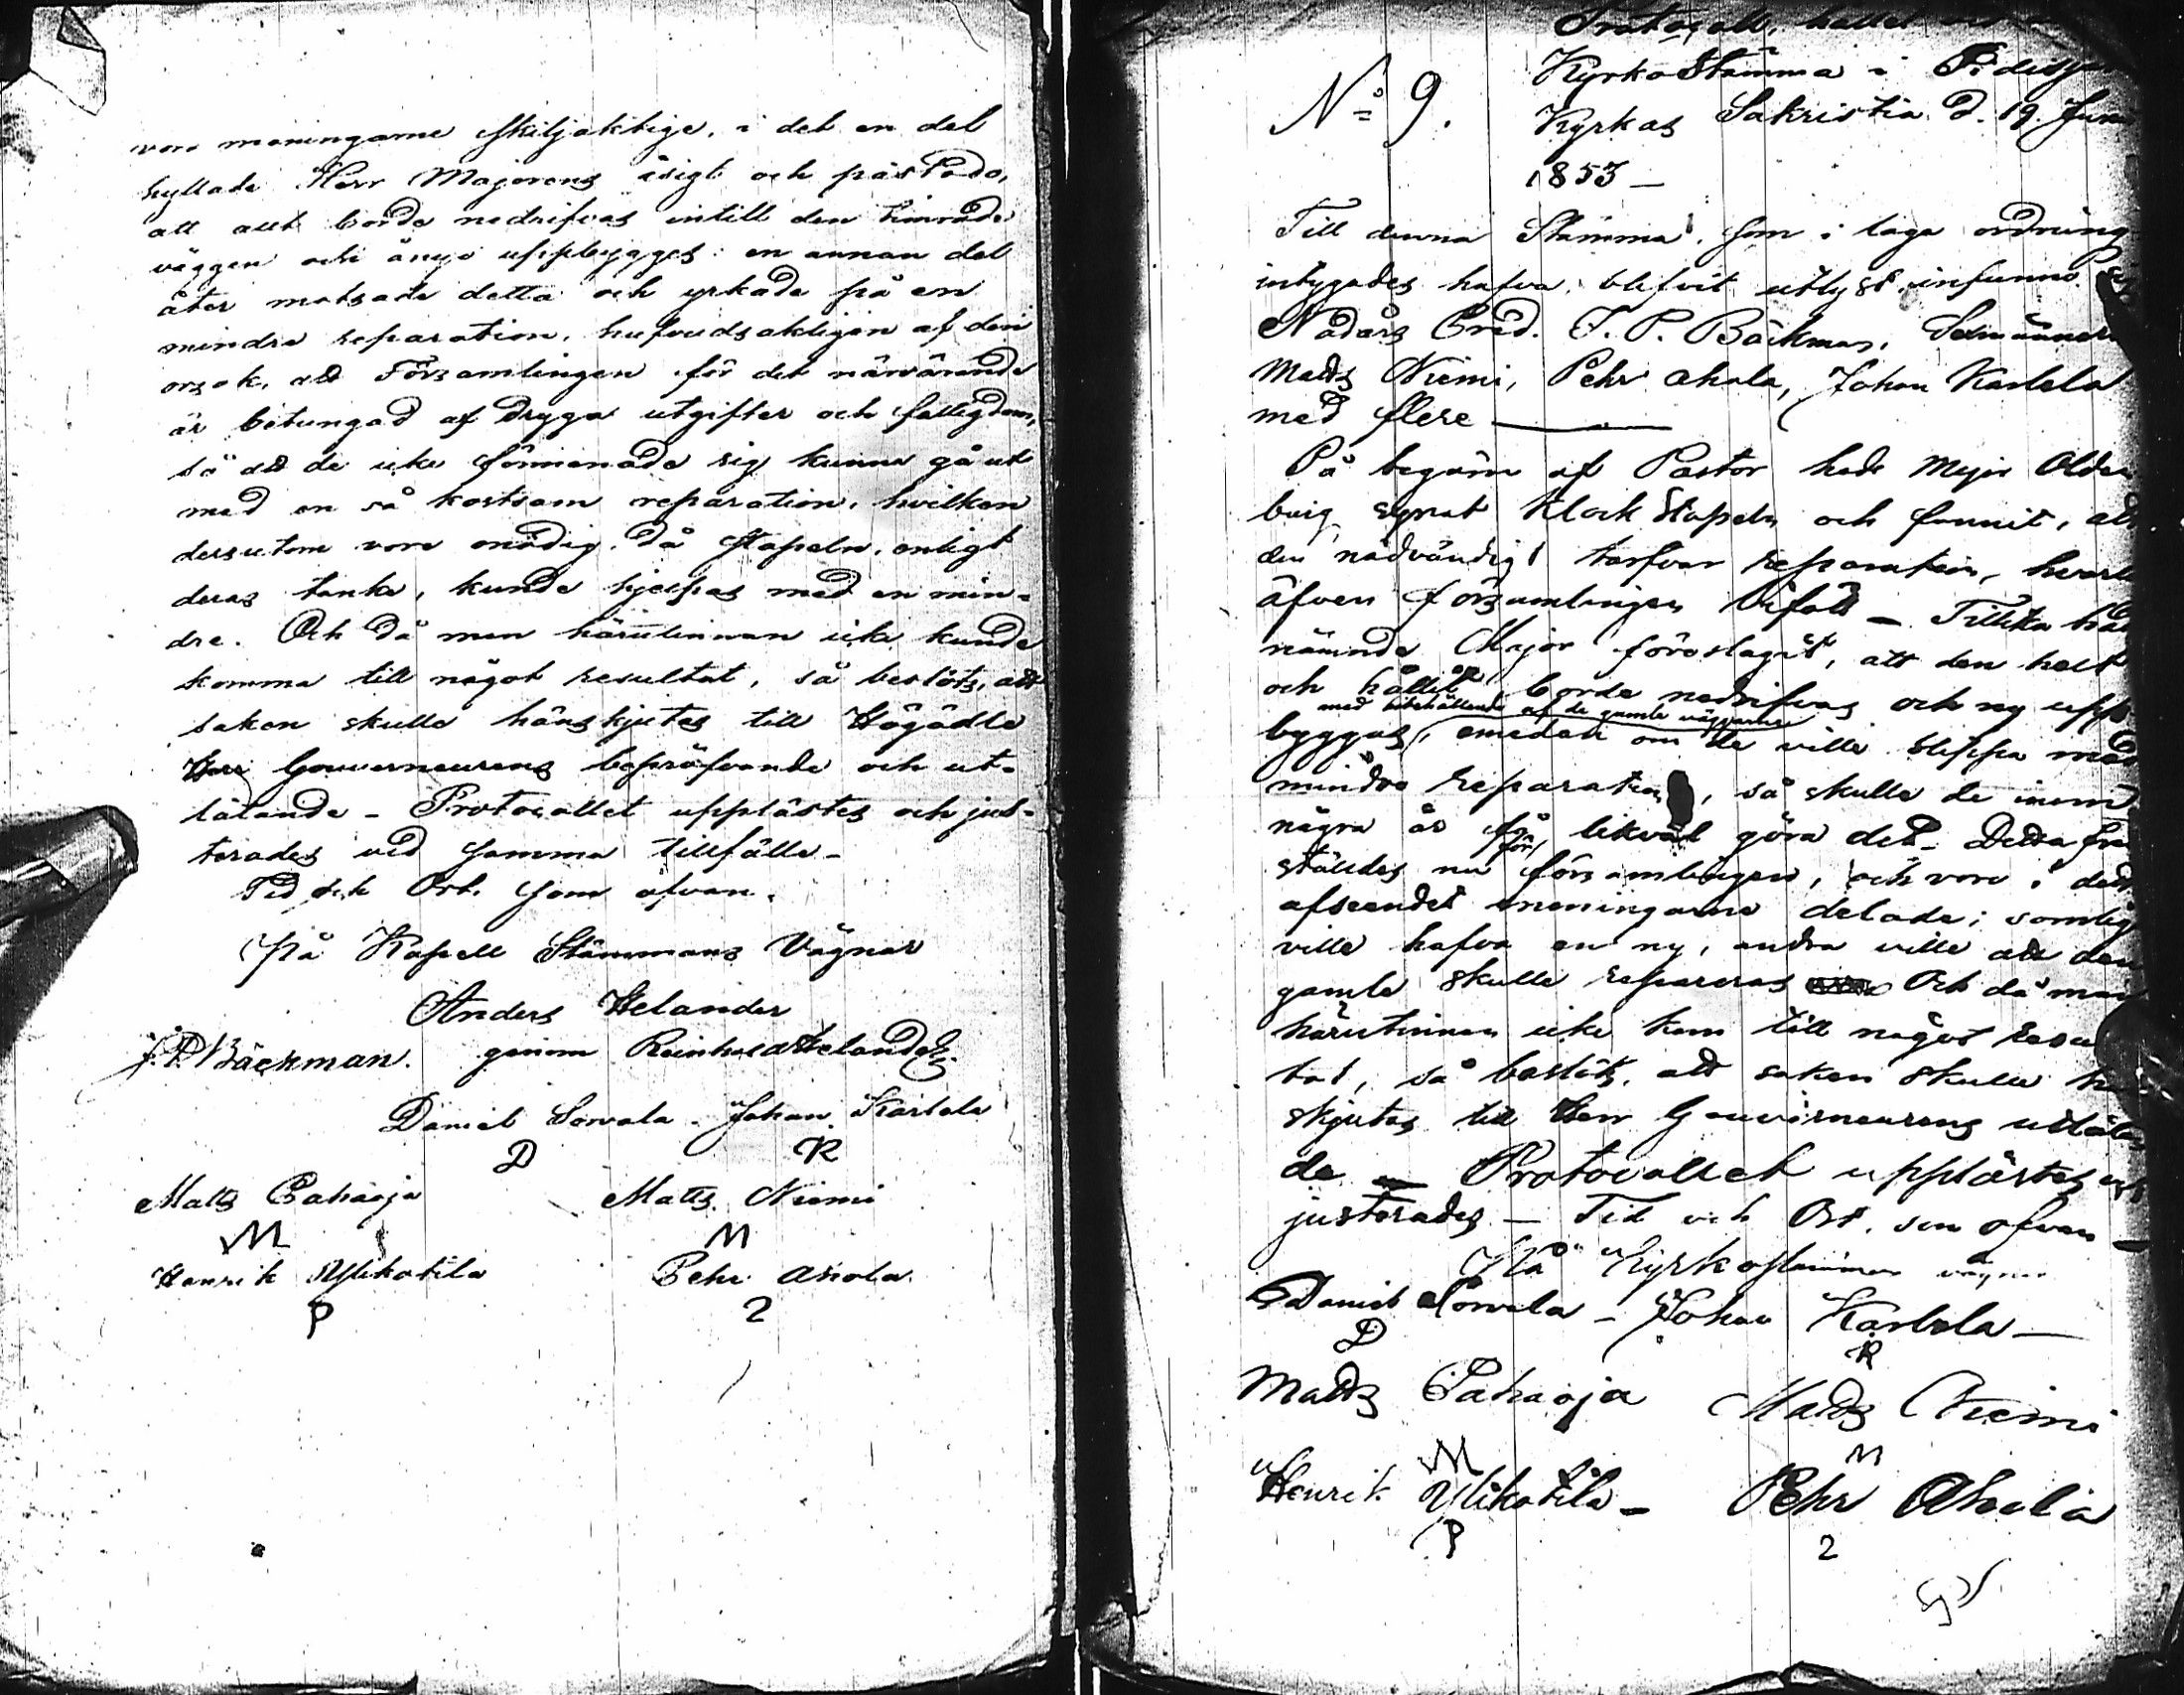 vore meningarne skiljaktige, i det en del
hyllade Herr Majorens åsigt och påstodo,
att allt borde nedrifvas intill den timrade
väggen och ånyo uppbygges: en annan del
åter motsade detta och yrkade på en
mindre reparation, hufvudsakligen af den
orsak, att Församlingen för det närvarande
är betungad af dryga utgifter och fattigdom,
så att de icke förmenade sig kunna gå ut
med en så kostsam reparation, hvilken
dessutom vore onödig, då stapeln, enligt
deras tanke, kunde hjelpas med en min-
dre. Och då man härutinnan icke kunde
komma till något resultat, så beslöts, att
saken skulle hänskjutas till Högädle
Herr Gouverneurens bepröfvande och ut-
låtande - Protocollet upplästes och jus-
terades vid samma tillfälle -
Tid och Ort som ofvan.
På Kapell Stämmans Vägnar
Anders Helander
J. P. Bäckman. genom Reinhold Helander
Daniel Sorvala - Johan Karlela
D R
Matts Pahaoja Matts Niemi
M M
Henrik Ylikotila Pehr Ahola
P 2
Protocoll, hållet
No 9. KyrkoStämma i
Kyrkas Sakristia d. 19. Juni
1853 -
Till denna Stämma, som i laga ordning
intygades hafva blifvit utlyst, infunno
Nådårs Pred. J. P. Bäckman, Sexmännen
Matts Niemi, Pehr Ahola, Johan Karlela
med flere -
På begäran af Pastor hade Major Olden
burg synat KlockStapeln och funnit, att
den nödvändigt tarfvar reparation, hvartill
äfven församlingen biföll - Tillika hade
nämnde Major föreslagit, att den helt
och hållit borde nedrifvas och ny upp
med bibehållande af de gamla väggarne
byggas, emedan om de ville slippa med
mindre reparation, så skulle de inom
några år få likväl göra det - Detta fram
för
ställdes nu församlingen, och voro i detta
afseendet meningarne delade; somlige
ville hafva en ny, andra ville att den
gamla skulle repareras Och då man
härutinnan icke kom till något resul
tat, så beslöts, att saken skulle hän
skjutas till Herr Gouverneurens utlåtan
de - Protocollet upplästes och
justerades - Tid och Ort, som ofvan -
På Kyrkostämmans vägnar
Daniel Sorvala - Johan Karlela -
D R
Matts Pahaoja Matts Niemi
M M
Henrik Ylikotila - Pehr Ahola
P 2